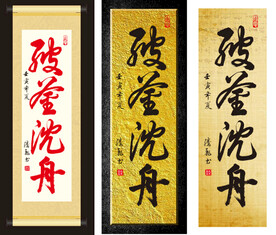 破釜沈舟
壬寅季夏
破釜沈舟
壬寅季夏
破釜沈舟
壬寅季夏